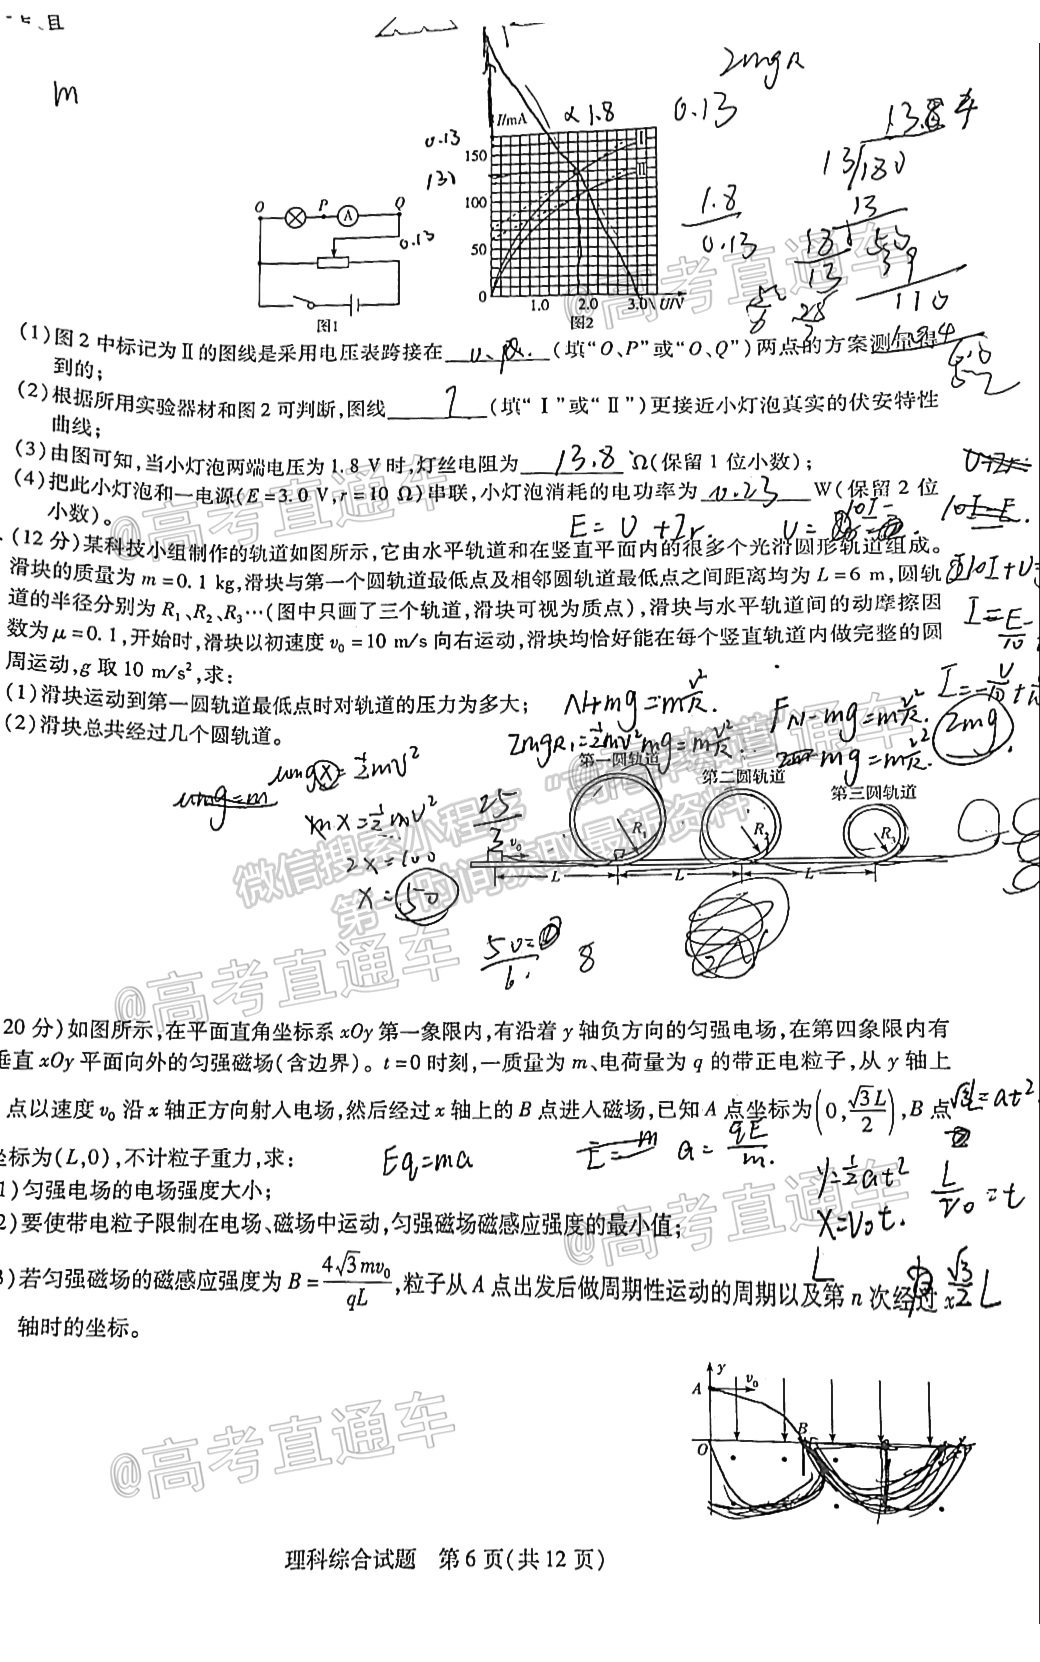 m
2mgR
I/mA
α 1.8
0.13
0.13
150
130
100
50
0
1.0
2.0
3.0
U/V
Ⅰ
Ⅱ
O
P
Q
A
0.13
图1
图2
1.8
0.13
13
110
@高考直通车
(1)图2中标记为Ⅱ的图线是采用电压表跨接在(填“O、P”或“O、Q”)两点的方案测量得
到的;
(2)根据所用实验器材和图2可判断,图线(填“Ⅰ”或“Ⅱ”)更接近小灯泡真实的伏安特性
曲线;
(3)由图可知,当小灯泡两端电压为1.8 V时,灯丝电阻为 13.8 Ω(保留1位小数);
(4)把此小灯泡和一电源(E=3.0 V,r=10 Ω)串联,小灯泡消耗的电功率为 0.23 W(保留2位
小数)。
E= U +Ir.
@高考直通车
(12分)某科技小组制作的轨道如图所示,它由水平轨道和在竖直平面内的很多个光滑圆形轨道组成。
滑块的质量为m=0.1 kg,滑块与第一个圆轨道最低点及相邻圆轨道最低点之间距离均为L=6 m,圆轨
道的半径分别为R₁、R₂、R₃…(图中只画了三个轨道,滑块可视为质点),滑块与水平轨道间的动摩擦因
数为μ=0.1,开始时,滑块以初速度v₀=10 m/s向右运动,滑块均恰好能在每个竖直轨道内做完整的圆
周运动,g取10 m/s²,求:
(1)滑块运动到第一圆轨道最低点时对轨道的压力为多大;
(2)滑块总共经过几个圆轨道。
N+mg=m v²/R.
F_N-mg=m v²/R.
2mg
2mgR₁=½mv²
mg=m v²/R.
mg=m v²/R.
μmgx=½mv²
2x=100
x=50
第一圆轨道
第二圆轨道
第三圆轨道
R₁
R₂
R₃
v₀
L
L
L
25
3
8
微信搜索小程序“高考早知道”
第一时间获取最新资料
@高考直通车
20分)如图所示,在平面直角坐标系xOy第一象限内,有沿着y轴负方向的匀强电场,在第四象限内有
垂直xOy平面向外的匀强磁场(含边界)。t=0时刻,一质量为m、电荷量为q的带正电粒子,从y轴上
点以速度v₀沿x轴正方向射入电场,然后经过x轴上的B点进入磁场,已知A点坐标为(0,√3L/2),B点
坐标为(L,0),不计粒子重力,求:
Eq=ma
a= qE/m.
y=½at²
x=v₀t.
L/v₀ =t
1)匀强电场的电场强度大小;
2)要使带电粒子限制在电场、磁场中运动,匀强磁场磁感应强度的最小值;
3)若匀强磁场的磁感应强度为B=4√3mv₀/qL,粒子从A点出发后做周期性运动的周期以及第n次经过x
轴时的坐标。
L
√3/2 L
@高考直通车
y
A
v₀
B
O
@高考直通车
理科综合试题 第6页(共12页)